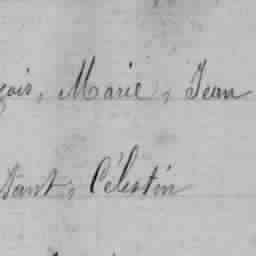 çois, Marie, Jean
stant, Célestin